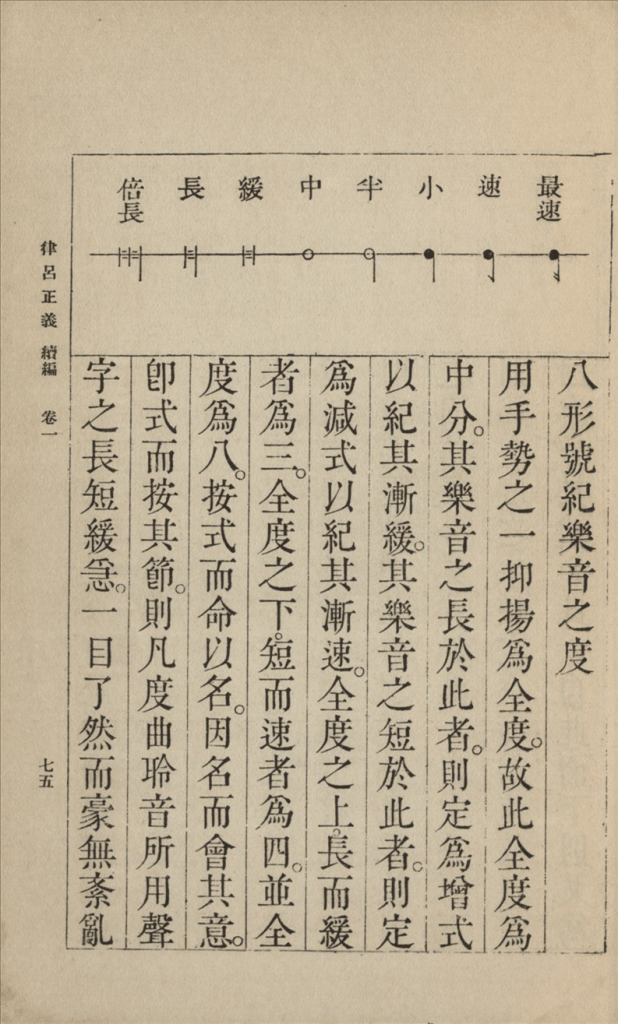 最速
速
小
半
中
緩
長
倍長
八形號紀樂音之度
用手勢之一抑揚爲全度。故此全度爲
中分。其樂音之長於此者。則定爲增式
以紀其漸緩。其樂音之短於此者。則定
爲減式以紀其漸速。全度之上。長而緩
者爲三。全度之下。短而速者爲四。並全
度爲八。按式而命以名。因名而會其意。
卽式而按其節。則凡度曲聆音所用聲
字之長短緩急。一目了然而豪無紊亂
律呂正義 續編 卷一
七五